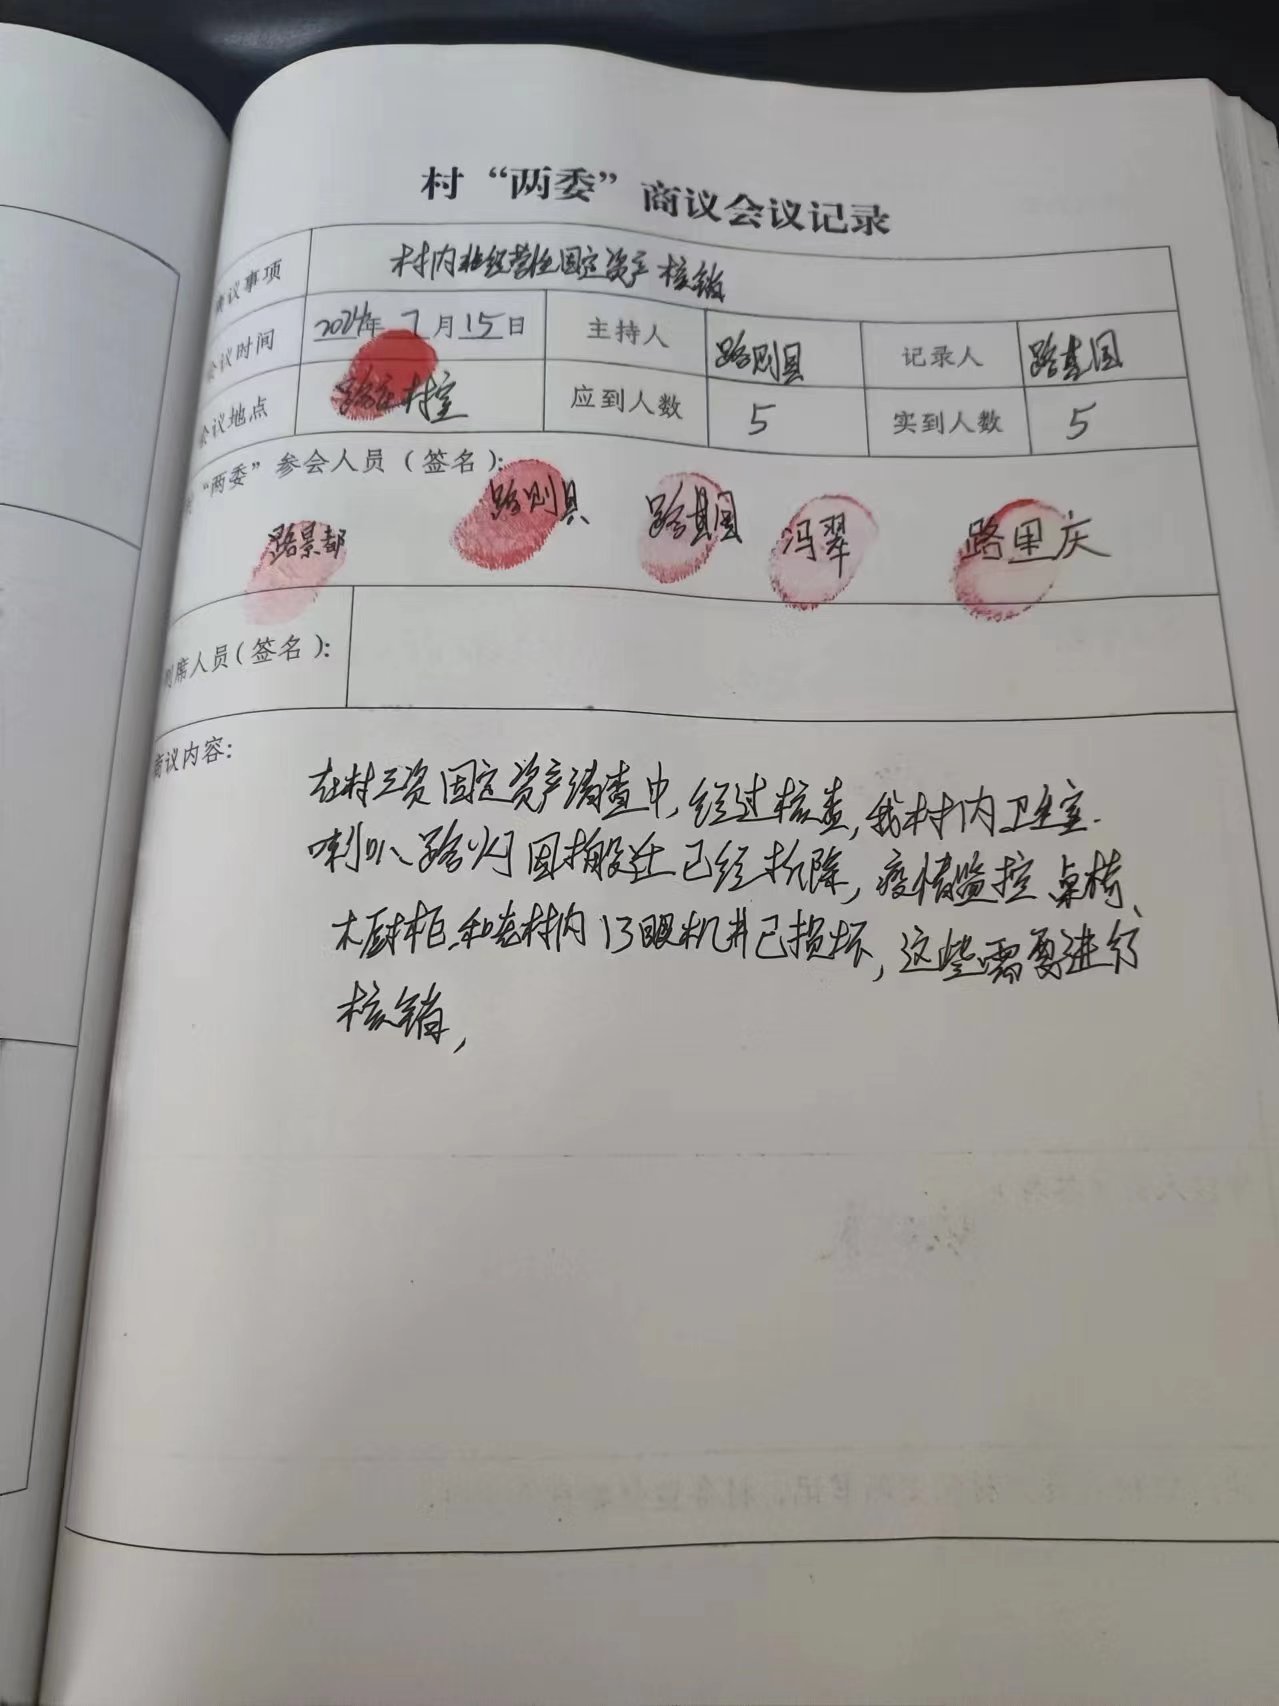 村“两委”商议会议记录
商议事项 村内非经营性固定资产核销
会议时间 2024年7月15日 主持人 路则具 记录人 路其国
会议地点 路庄村室 应到人数 5 实到人数 5
村“两委”参会人员（签名）：
路景都 路则具 路其国 冯翠 路里庆
列席人员（签名）：
商议内容：
在村三资固定资产清查中，经过核查，我村内卫生室、
喇叭、路灯因搬迁已经拆除，疫情监控、桌椅、
木厨柜、和老村内13眼机井已损坏，这些需要进行
核销，